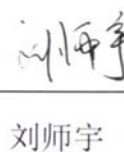 刘师宇
刘师宇